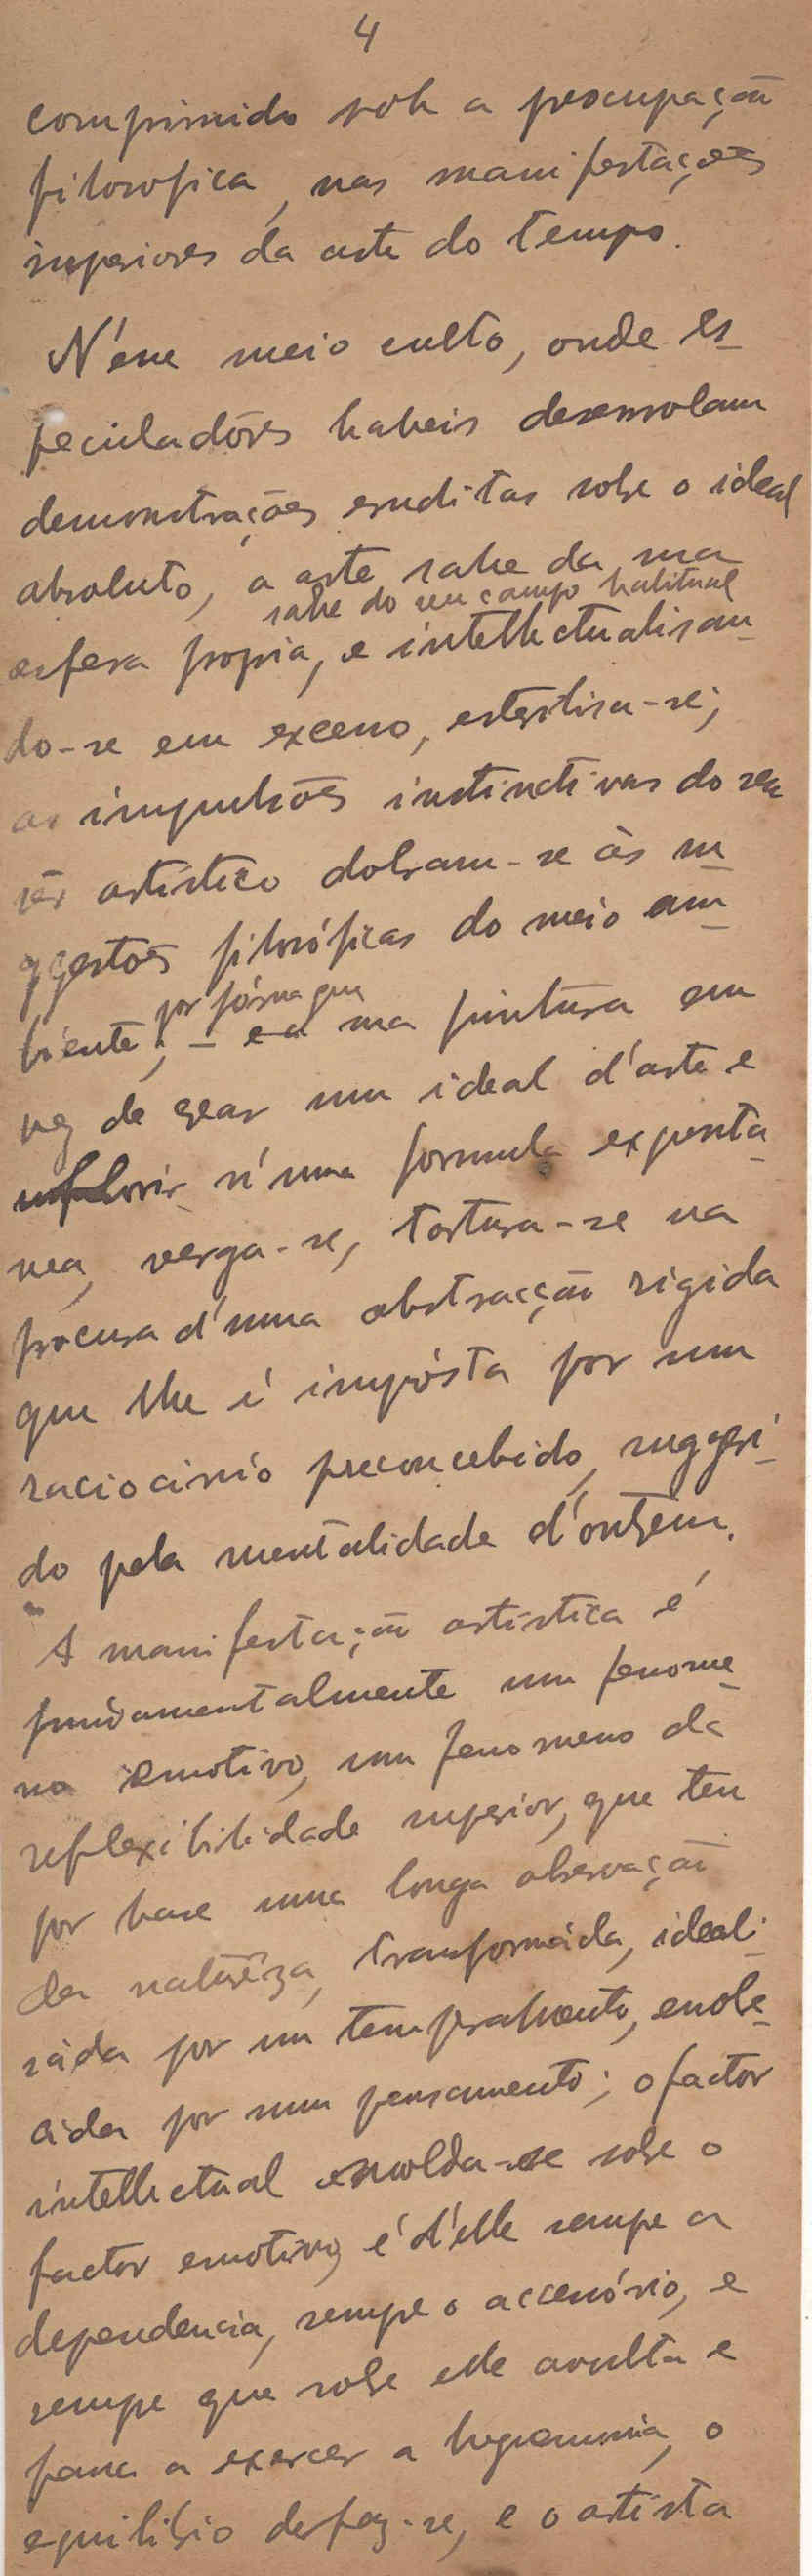 4
comprimido sob a preocupação
filosofica, nas manifestações
superiores da arte do tempo.
N'esse meio culto, onde es-
peculadôres habeis desenrolam
demonstrações eruditas sobre o ideal
absoluto, a arte sahe da sua
sahe do seu campo habitual
esfera propria, e intellectualisan-
do-se em excesso, esterilisa-se;
as impulsões instinctivas do seu
sêr artistico dobram-se ás su-
ggestões filosóficas do meio am-
por fórma que
biente; – e a sua pintura em
vez de crear um ideal d'arte e
florir n'uma formula expontâ-
nea, verga-se, tortura-se na
procura d'uma abstracção rigida
que lhe é impósta por um
raciocinio preconcebido, suggeri-
do pela mentalidade d'outrem.
A manifestação artistica é
fundamentalmente um fenome-
no emotivo, um fenomeno da
reflexibilidade superior, que tem
por base uma longa observação
da naturêza, transformáda, ideali-
sáda por um temperamento,
por um pensamento; o factor
intellectual molda-se sobre o
factor emotivo, é d'elle sempre a
dependencia, sempre o accessório, e
sempre que sobre elle avulta e
passa a exercer a hegemonia, o
equilibrio desfaz-se, e o artista